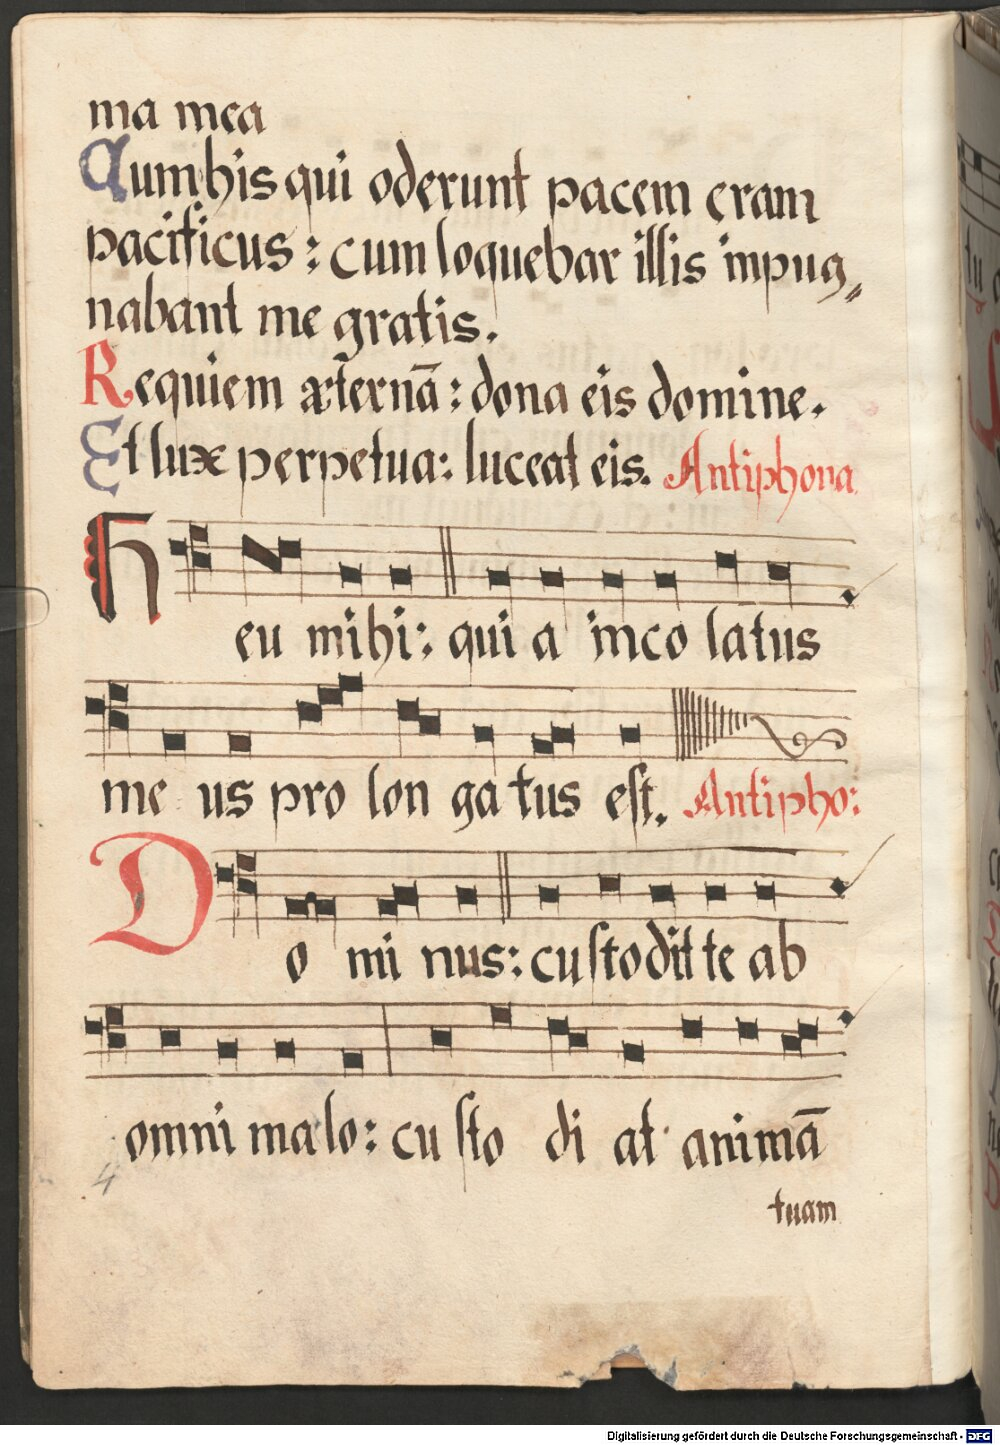 ma mea
Cum his qui oderunt pacem eram
pacificus : cum loquebar illis inpug„
nabant me gratis.
Requiem æternā : dona eis domine.
Et lux perpetua: luceat eis. Antiphona
Heu mihi: qui a inco latus
me us pro lon ga tus est. Antipho:
Do mi nus: custodit te ab
omni malo: cu sto di at animā
4
tuam
Digitalisierung gefördert durch die Deutsche Forschungsgemeinschaft - DFG